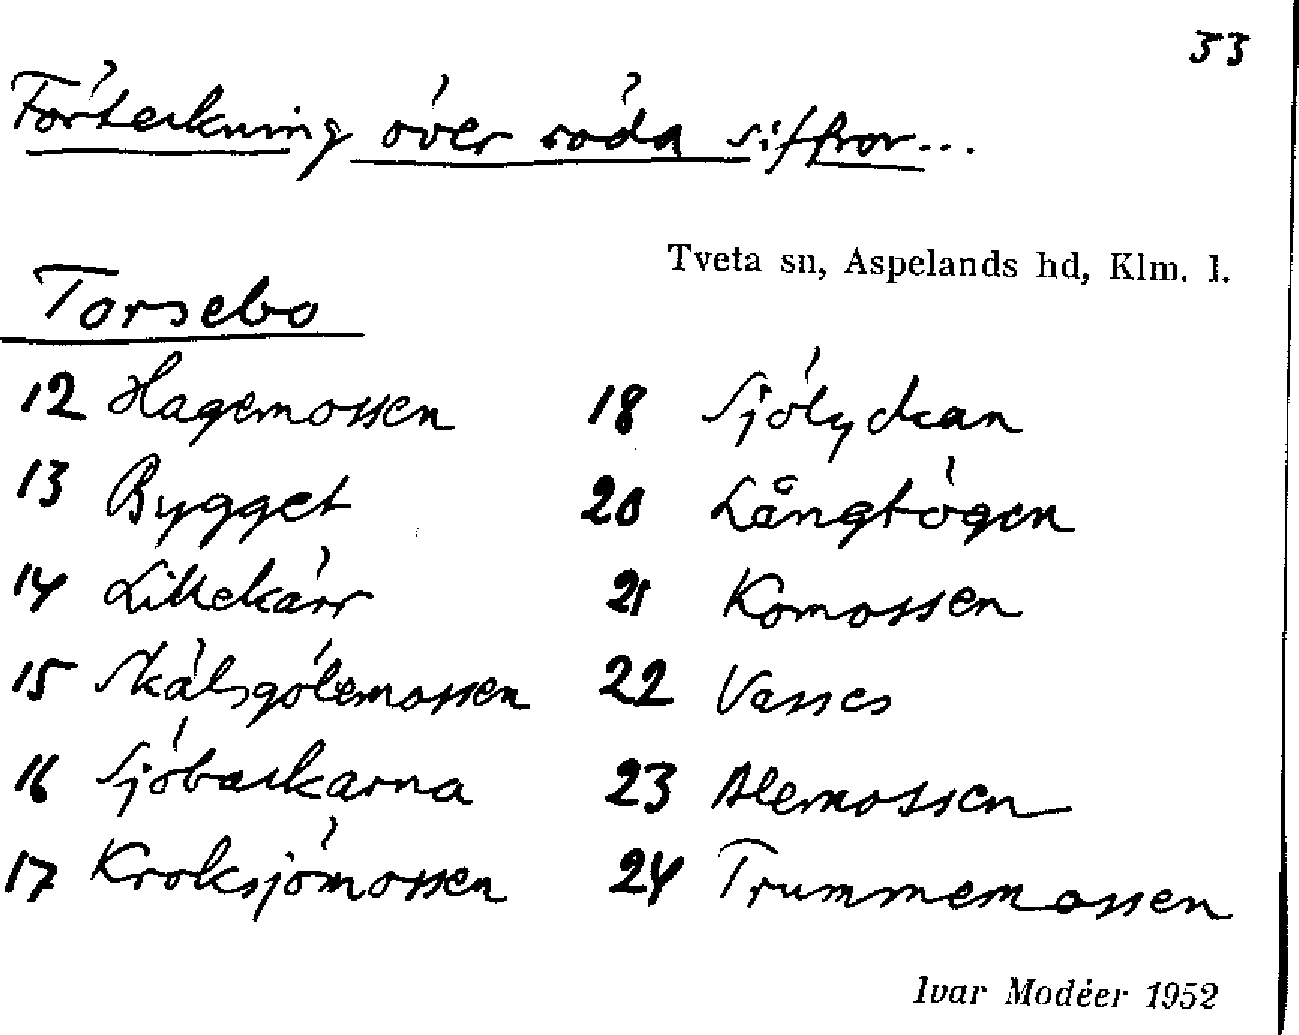 53
Förteckning över röda siffror...
Tveta sn, Aspelands hd, Klm. l.
Torsebo
12 Hagemossen
13 Bygget
14 Lillekärr
15 Skälsgölemossen
16 Sjöbackarna
17 Kroksjömossen
18 Sjölyckan
20 Långhögen
21 Komossen
22 Vasses
23 Alemossen
24 Trummemossen
Ivar Modéer 1952